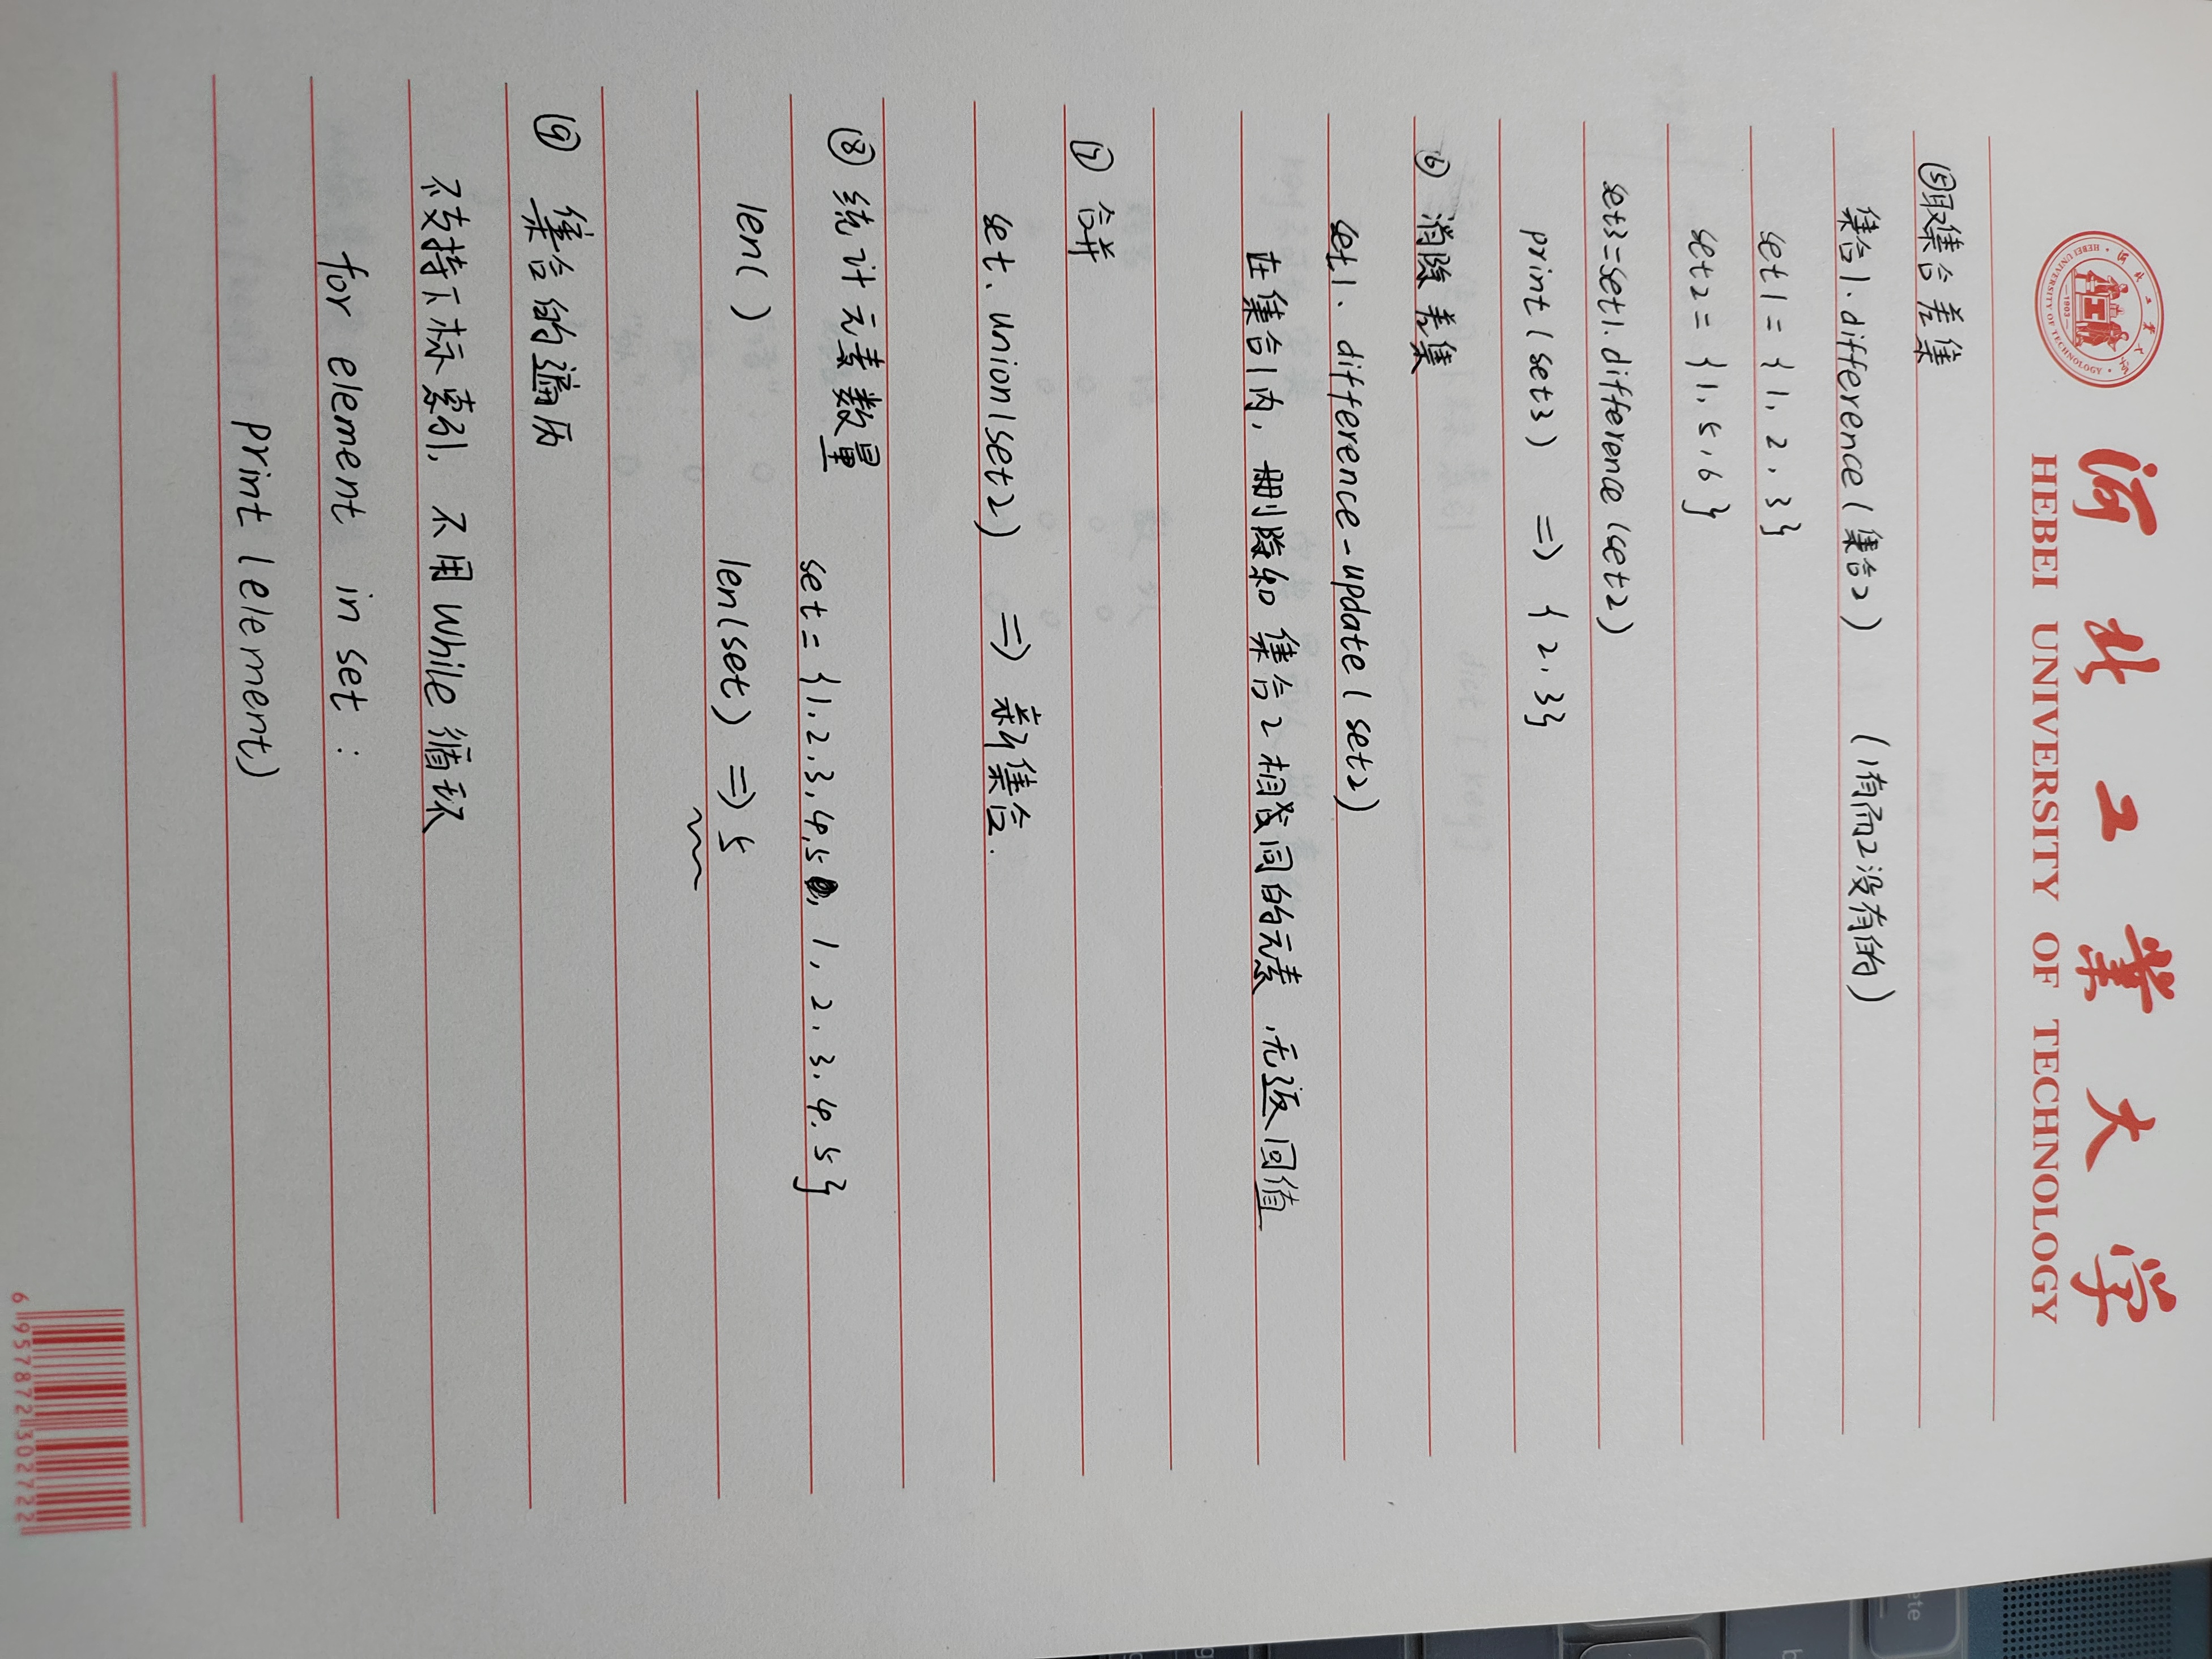 河北工業大学
HEBEI UNIVERSITY OF TECHNOLOGY
河北工業大学
HEBEI UNIVERSITY OF TECHNOLOGY
1903
⑤取集合差集
集合1.difference(集合2) (1有而2没有的)
set1 = {1, 2, 3}
set2 = {1, 5, 6}
set3=set1.difference(set2)
print(set3) => {2, 3}
⑥ 消除差集
set1. difference_update(set2)
在集合1内, 删除和集合2相同的元素,无返回值
⑦ 合并
set. union(set2) => 新集合.
⑧ 统计元素数量
set = {1, 2, 3, 4, 5, 1, 2, 3, 4, 5}
len( ) len(set) => 5
⑨ 集合的遍历
不支持下标索引, 不用while循环
for element in set :
print(element)
6 957872 302722